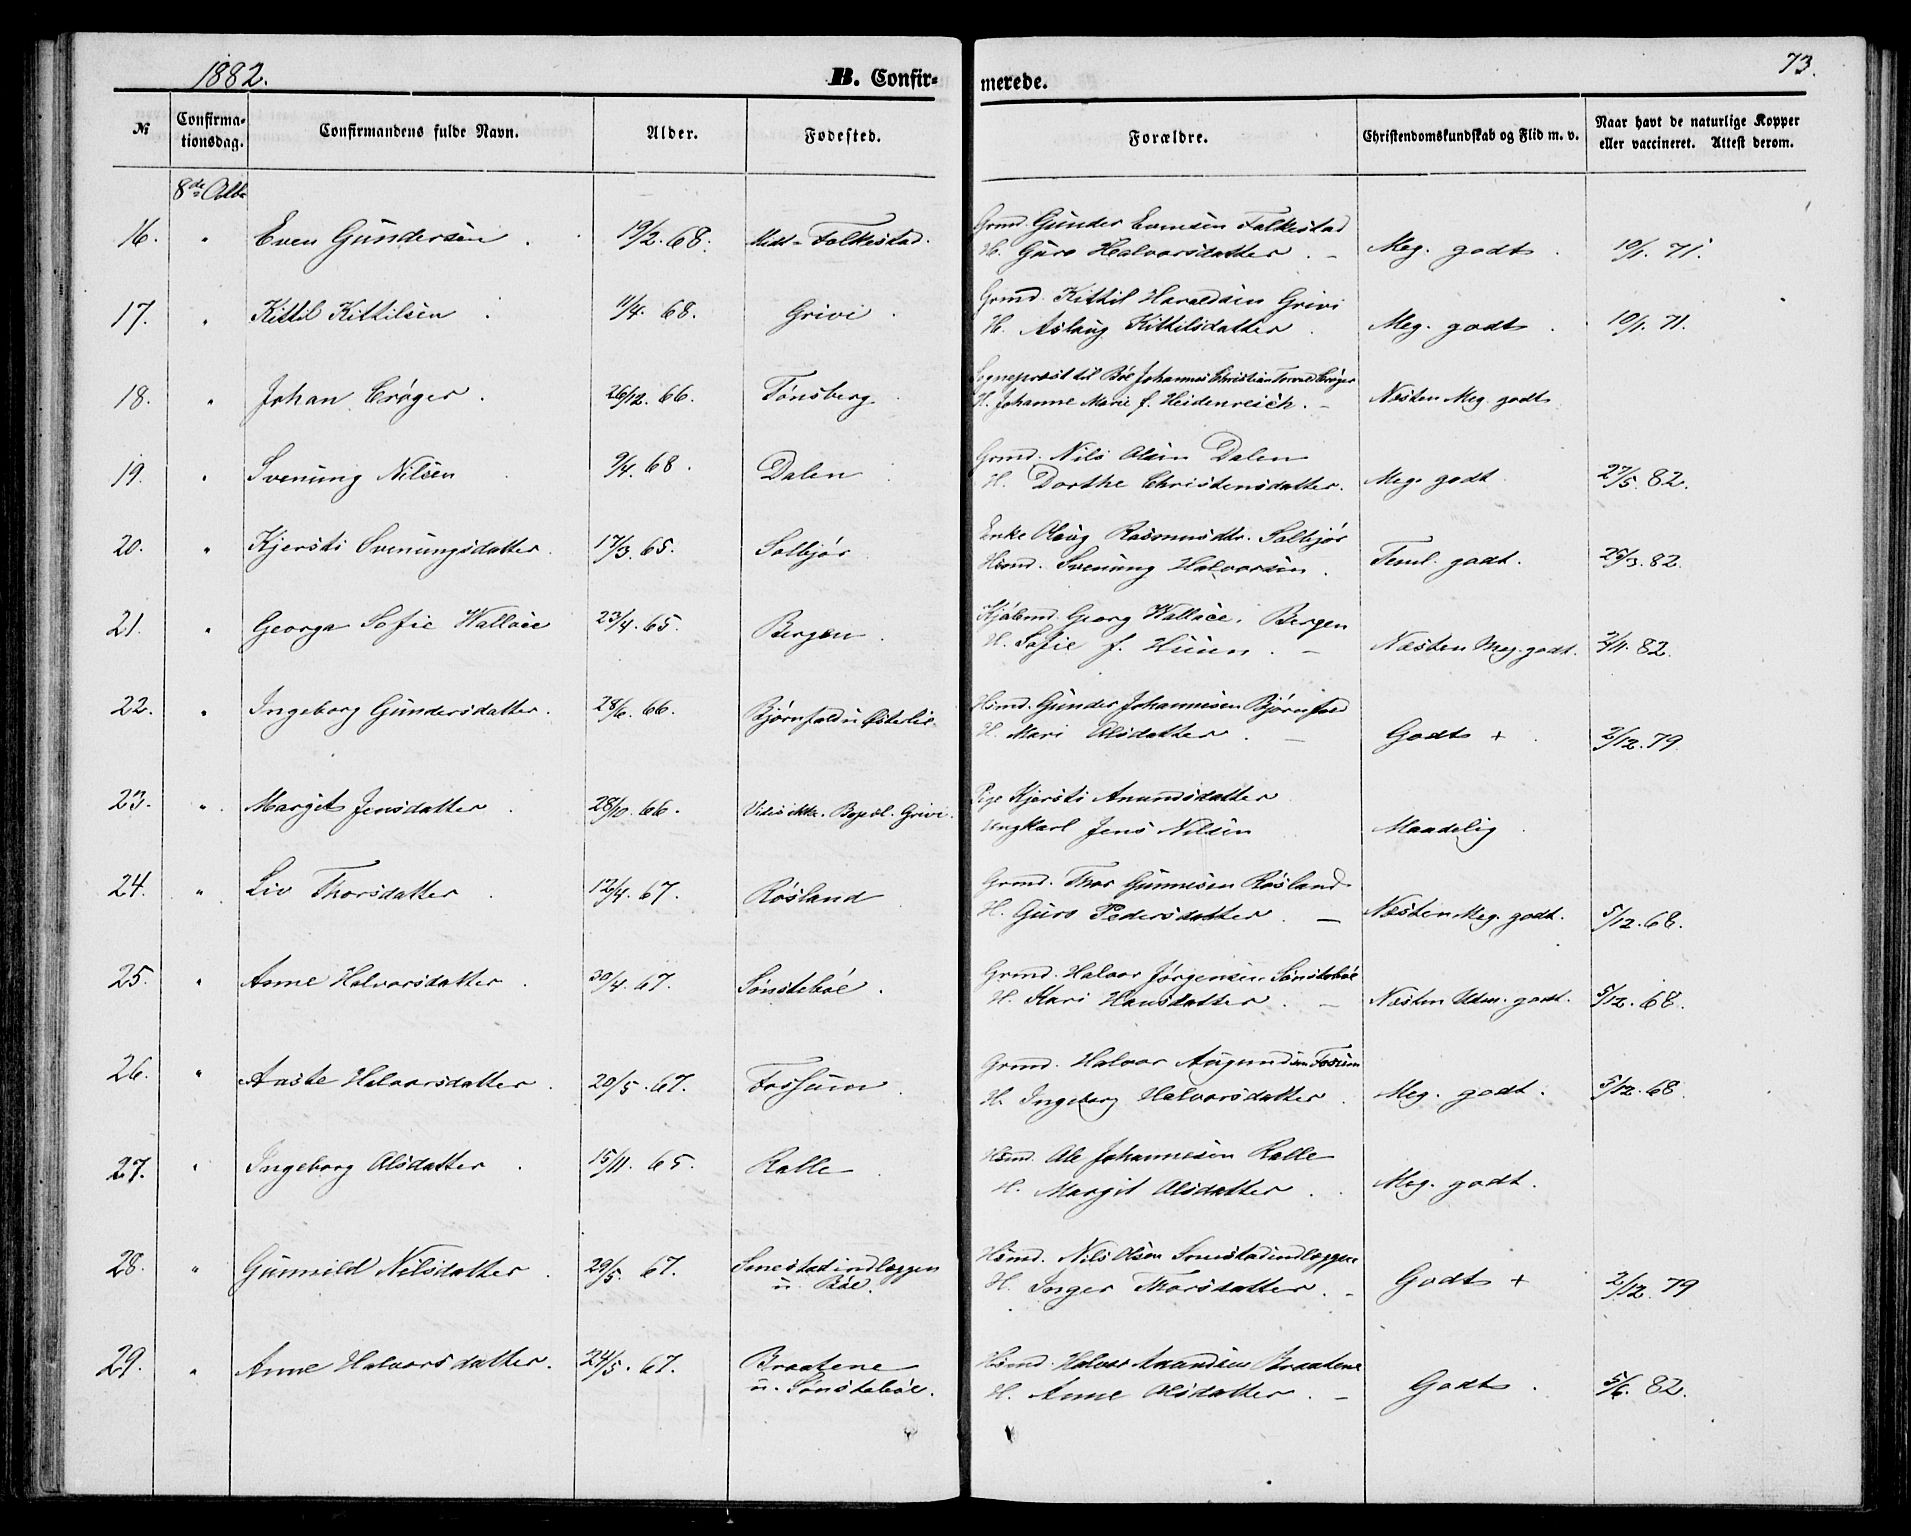 1882.
B. Confir-
merede.
73.
№
Confirma-
tionsdag.
Confirmandens fulde Navn.
Alder.
Fødested.
Forældre.
Christendomskundskab og Flid m. v.
Naar havt de naturlige Kopper
eller vaccineret. Attest derom.
8de Octbr
16. " Even Gundersen. 19/2. 68. Midt-Folkestad.
Grmd. Gunder Evensen Folkestad
H. Guro Halvorsdatter. - Meg. godt. 10/1. 71.
17. " Kittil Kittilsen 11/4. 68. Grivi.
Grmd. Kittil Haraldsen Grivi
H. Aslaug Kittilsdatter. Meg. godt. 10/1. 71.
18. " Johan Crøger. 26/12. 66. Tønsberg.
Sognepræst til Bøe Johannes Christian Crøger
H. Johanne Marie f. Heidenreich. - Næsten Meg. godt
19. " Svenung Nilsen 9/4. 68. Dalen
Grmd. Nils Olsen Dalen
H. Dorthe Christensdatter. Meg. godt. 27/5. 82.
20. " Kjersti Svenungsdatter. 17/3. 65. Solbjør
Enke Olaug Rasmusdtr. Solbjør
Hsmd. Svenung Halvorsen. Teml. godt. 25/3. 82.
21. " Georga Sofie Wallace 23/4. 65. Bergen.
Kjøbmd. Georg Wallace, Bergen
H. Sofie f. - Næsten Meg. godt. 2/11. 82.
22. " Ingeborg Gundersdatter. 28/6. 66. Bjørnfald u. Østerlie.
Hsmd. Gunder Johannesen
H. Mari Olsdatter. - Godt + 2/12. 79
23. " Margit Jensdatter 28/10. 66. Vides ikke. Bopæl. Grivi.
Pige Kjersti Anundsdatter
Ungkarl Jens Nilsen Maadelig
24. " Liv Thorsdatter 12/4. 67. Røsland
Grmd. Thor Gunnesen Røsland
H. Guro Pedersdatter. - Næsten Meg. godt. 5/12. 68.
25. " Anne Halvorsdatter. 30/4. 67. Sønstebøe.
Grmd. Halvor Jørgensen Sønstebøe
H. Kari Hansdatter. - Næsten Udm. godt. 5/12. 68.
26. " Aaste Halvorsdatter. 20/5. 67. Fossum.
Grmd. Halvor Augundsen Fossum
H. Ingeborg Halvorsdatter. Meg. godt. 5/12. 68.
27. " Ingeborg Olsdatter. 15/11. 65. Ralle.
Hsmd. Ole Johannesen Ralle
H. Margit Olsdatter. Meg. godt.
28. " Gunnild Nilsdatter. 29/5. 67. Smestadindlæggen
u. Bøe.
Hsmd. Nils Olsen Smestadindlæggen
H. Inger Thorsdatter. - Godt + 2/12. 79
29. " Anne Halvorsdatter. 24/5. 67. Braatene
u. Sønstebøe.
Hsmd. Halvor Anundsen Braatene
H. Anne Olsdatter. - Godt. 5/6. 82.